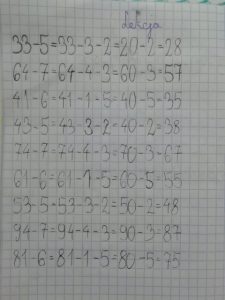 Lekcja
33-5=33-3-2=20-2=28
64-7=64-4-3=60-3=57
41-6=41-1-5=40-5=35
43-5=43 3-2=40-2=38
74-7=74-4-3=70-3=67
61-6=61-1-5=60-5=55
53-5=53-3-2=50-2=48
94-7=94-4-3=90-3=87
81-6=81-1-5=80-5=75